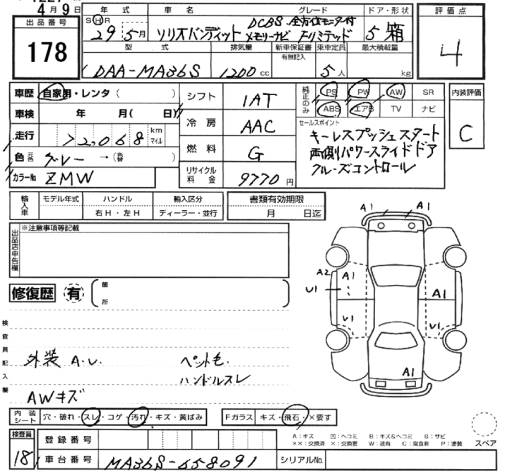 4月9日
出品番号
178
年式 車名 グレード ドア・形状
S H R
29年5月 ソリオバンディット DCBS 全方位モニター付
メモリーナビ F・リミテッド 5 箱
評価点
4
型式 排気量 新車保証書 乗車定員 最大積載量
有無記入
DAA-MA36S 1200 cc 5人 kg
車歴 自家用・レンタ( )
車検 年 月( 日)
走行 72,068 km マイル
色 元色 グレー →(替 )
カラーNo ZMW
シフト 1AT
冷房 AAC
燃料 G
リサイクル料金 9770円
純正のみ PS PW AW SR
ABS エアB TV ナビ
内装評価
C
セールスポイント
キーレスプッシュスタート
両側パワースライドドア
クルーズコントロール
輸入車 モデル年式 ハンドル 輸入区分
右H・左H ディーラー・並行
書類有効期限
月 日迄
出品店申告欄 ※注意事項等記載
修復歴 有 箇所
検査員記入欄
外装 A.U. ペット毛
ハンドルスレ
AWキズ
A1
A2 A1 A1
U1 U1
A1
A1
内装シート 穴・破れ・スレ・コゲ・汚れ・キズ・黄ばみ
Fガラス キズ・飛石・×要す
検査員
18
登録番号
車台番号 MA36S-658091 シリアルNo.
スペア